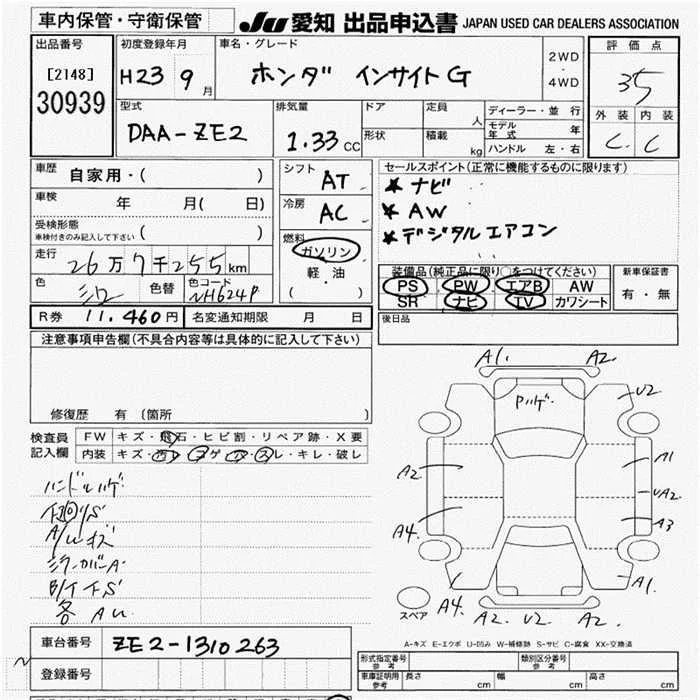 車内保管・守衛保管
JU 愛知 出品申込書 JAPAN USED CAR DEALERS ASSOCIATION
出品番号
[2148]
30939
初度登録年月
H23 9月
車名・グレード
ホンダ インサイトG
2WD
・
4WD
評価点
3.5
外装 内装
C C
型式
DAA-ZE2
排気量
1.33 CC
ドア
形状
定員
人
積載
kg
ディーラー・並行
モデル年式 年
ハンドル 左・右
車歴 自家用・( )
車検 年 月( 日)
受検形態
車検付きのみ記入して下さい ( )
走行 26万7千255km
色 シロ 色替 色コード NH624P
シフト AT
冷房 AC
燃料
ガソリン
軽・油
( )
セールスポイント(正常に機能するものに限ります)
★ナビ
★AW
★デジタルエアコン
装備品(純正品に限り○をつけてください)
PS PW エアB AW
SR ナビ TV カワシート
新車保証書
有・無
R券 11,460円 名変通知期限 月 日
後日品
注意事項申告欄(不具合内容等は具体的に記入して下さい)
修復歴 有(箇所 )
検査員
記入欄
FW キズ・飛石・ヒビ割・リペア跡・X要
内装 キズ・汚レ・コゲ・穴・スレ・キレ・破レ
ハンドルハゲ
A/Uキズ
ミラーカバーA
各AU
A1. A2.
Pハゲ U2
A2 A1
UA2
A4. A3
A4. A1.
スペア
A2 U2 A2.
A-キズ E-エクボ U-凹み W-補修跡 S-サビ C-腐食 XX-交換済
車台番号 ZE2-1310263
登録番号
形式指定番号 参考
類別区分番号 参考
車庫証明用 参考 長さ cm 幅 cm 高さ cm